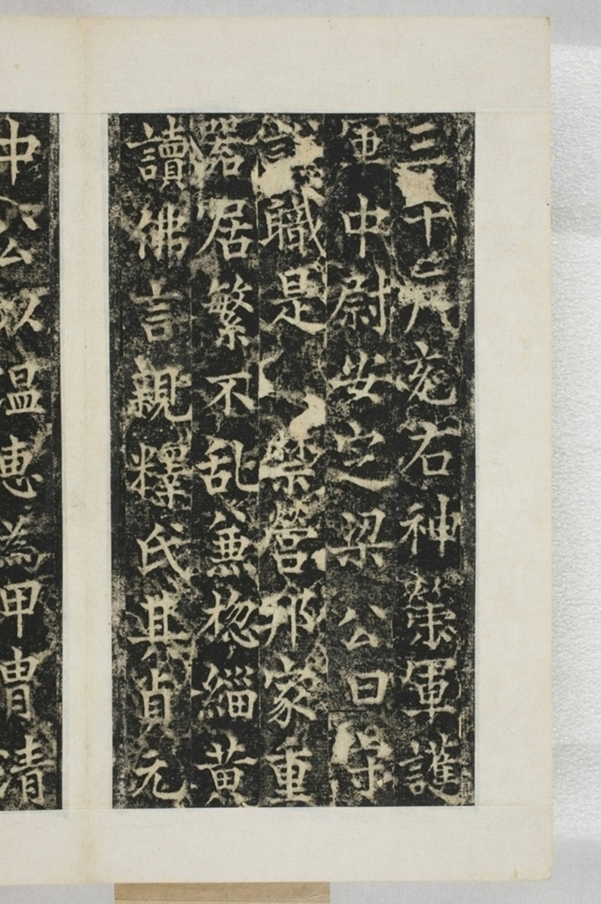 三十六充右神策軍護
軍中尉安定梁公曰守
職是禁營邦家重
器居繁不乱兼惣緇黃
讀佛言親釋氏其貞元
中公以温惠為甲胄清